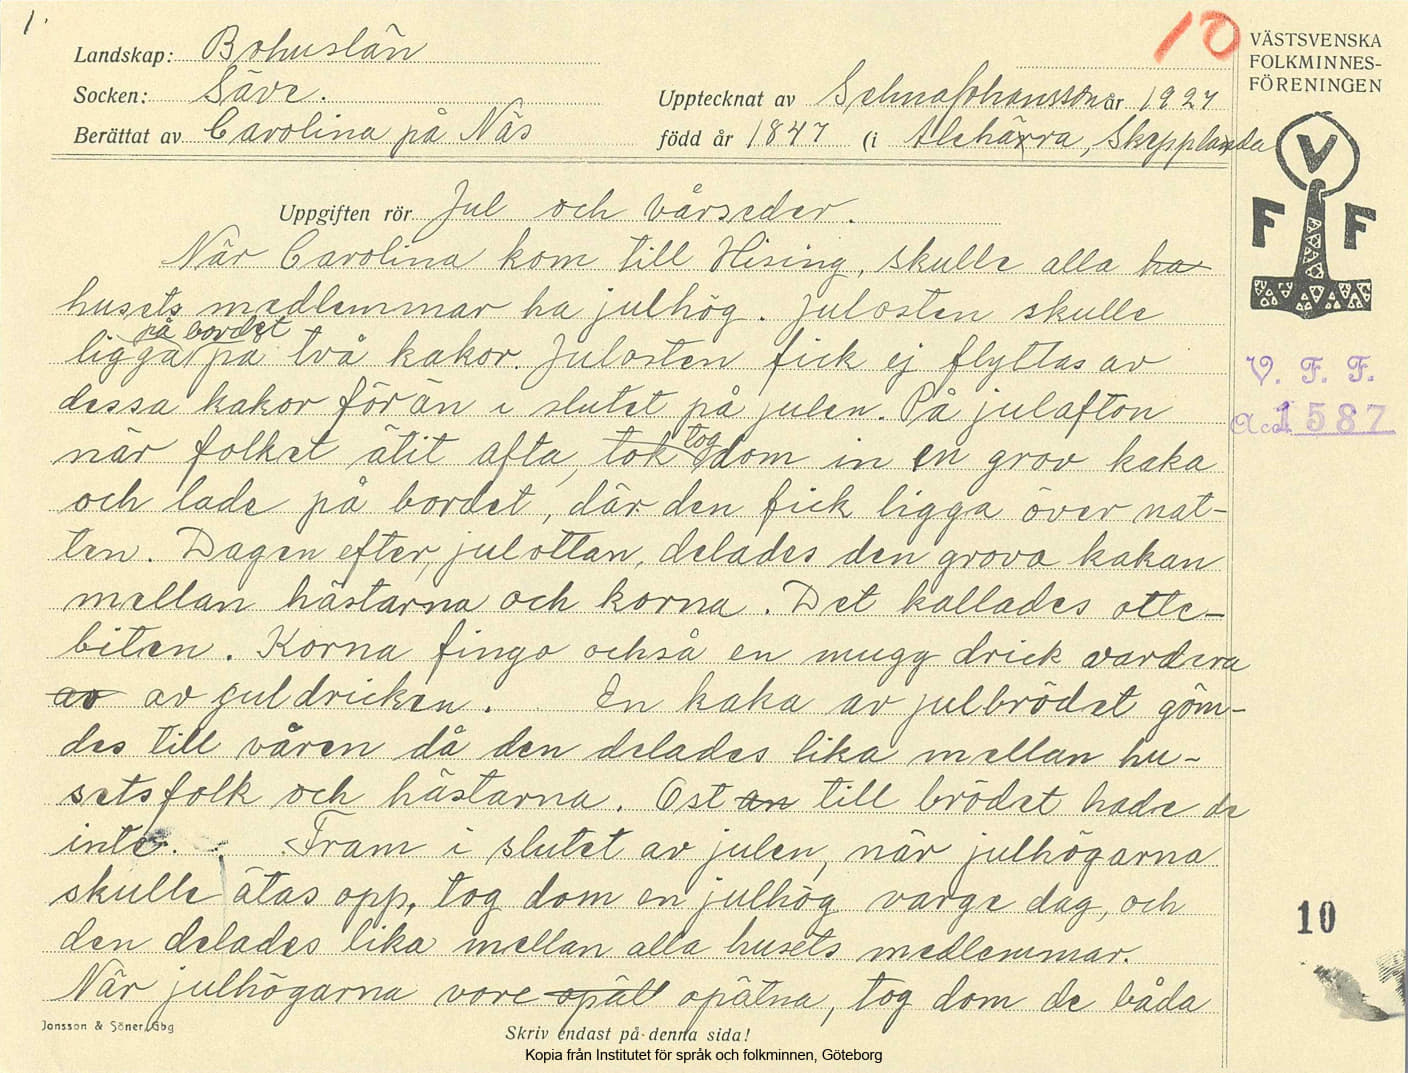 1.
10
Landskap: Bohuslän
Socken: Säve.
Berättat av Carolina på Näs
Upptecknat av Selma Johansson år 1927
född år 1847 (i Alehärra, Skepplanda
VÄSTSVENSKA
FOLKMINNES-
FÖRENINGEN
V
F F
V. F. F.
Acc. 1587
Uppgiften rör Jul och vårseder.
När Carolina kom till Hising, skulle alla ha
husets medlemmar ha julhög. Julosten skulle
på bordet
ligga på två kakor. Julosten fick ej flyttas av
dessa kakor förän i slutet på julen. På julafton
när folket ätit afta, tok tog dom in en grov kaka
och lade på bordet, där den fick ligga över nat-
ten. Dagen efter, julottan, delades den grova kakan
mellan hästarna och korna. Det kallades otte-
biten. Korna fingo också en mugg drick vardera
av av juldricken. En kaka av julbrödet göm-
des till våren då den delades lika mellan hu-
setsfolk och hästarna. Ost an till brödet hade de
inte. Fram i slutet av julen, när julhögarna
skulle ätas opp, tog dom en julhög varge dag, och
den delades lika mellan alla husets medlemmar.
När julhögarna vore opäll opätna, tog dom de båda
10
Jonsson & Söner, Gbg
Skriv endast på denna sida!
Kopia från Institutet för språk och folkminnen, Göteborg